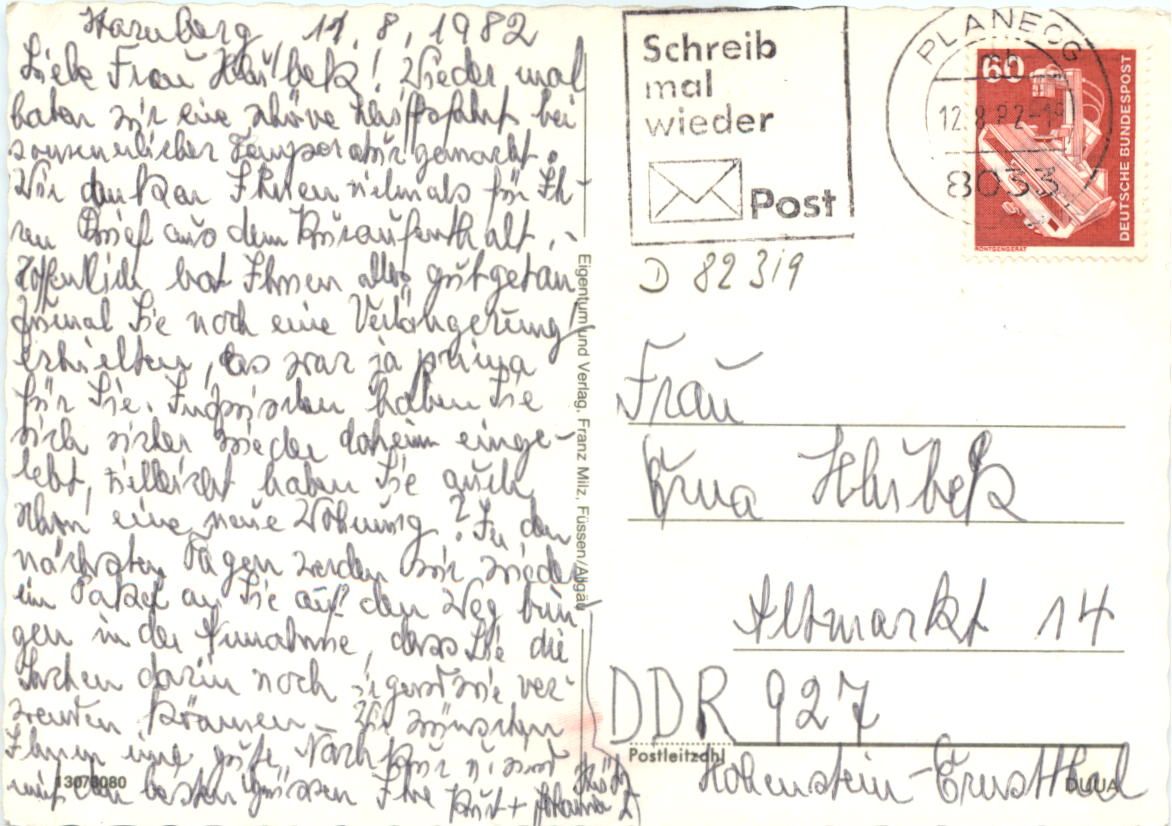 Starnberg 11.8.1982
Liebe Frau Hlubek! Wieder mal
haben wir eine schöne Schiffsfahrt bei
sommerlicher Temperatur gemacht.
Wir danken Ihnen vielmals für Ih-
ren Brief aus dem Kuraufenthalt.-
Hoffentlich hat Ihnen alles gutgetan
zumal Sie noch eine Verlängerung
erhielten, das war ja prima
für Sie. Inzwischen haben Sie
sich sicher wieder daheim einge-
lebt, vielleicht haben Sie auch
schon eine neue Wohnung? In den
nächsten Tagen werden wir wieder
ein Paket an Sie auf den Weg brin-
gen in der Annahme, dass Sie die
Sachen darin noch irgendwie ver-
wenden können. Wir wünschen
Ihnen eine gute Nachkur u. sind
mit den besten Grüssen Ihre Kurt + Johanna
13070080
Eigentum und Verlag, Franz Milz, Füssen/Allgäu
Schreib
mal
wieder
Post
PLANEGG
12.8.82
8033
60
DEUTSCHE BUNDESPOST
RÖNTGENGERÄT
D 82319
Frau
Erna Hlubek
Altmarkt 14
DDR 927
Postleitzahl
Hohenstein-Ernstthal